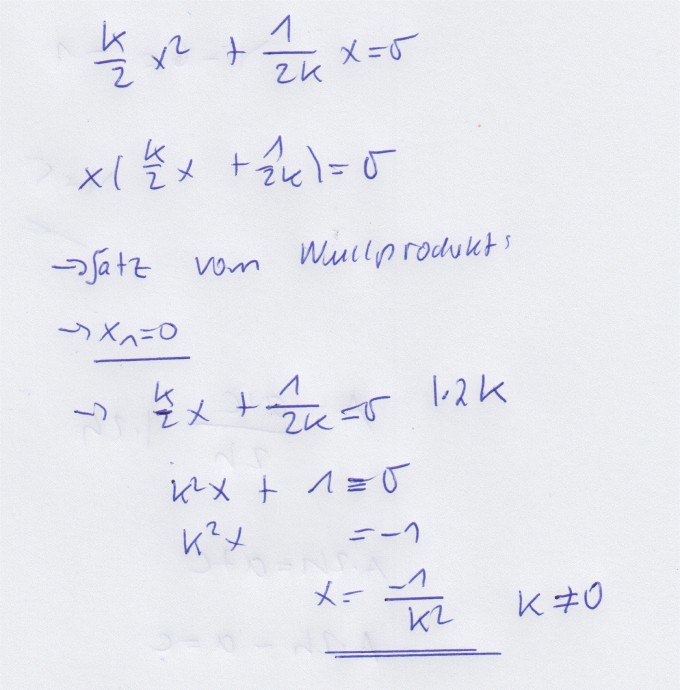 k/2 x² + 1/2k x = 0
x( k/2 x + 1/2k ) = 0
→ Satz vom Nullprodukt:
→ x₁=0
→ k/2 x + 1/2k = 0 |·2k
k²x + 1 = 0
k²x = -1
x = -1/k² k ≠ 0